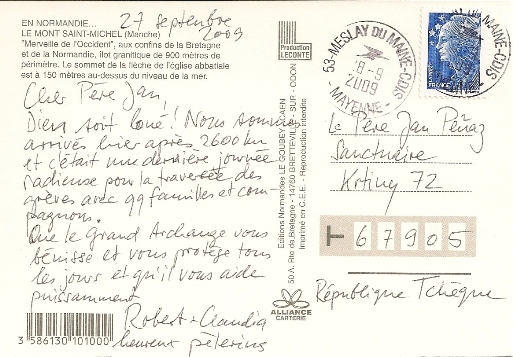 EN NORMANDIE...
LE MONT SAINT-MICHEL (Manche)
"Merveille de l'Occident", aux confins de la Bretagne
et de la Normandie, îlot granitique de 900 mètres de
périmètre. Le sommet de la flèche de l'église abbatiale
est à 150 mètres au-dessus du niveau de la mer.
27 septembre
2009
Cher Père Jan,
Dieu soit loué! Nous sommes
arrivés hier après 2600 km
et c'était une dernière journée
radieuse pour la traversée des
grèves avec 99 familles et com-
pagnons.
Que le Grand Archange vous
bénisse et vous protège tous
les jours et qu'il vous aide
puissamment
Robert + Claudia
heureux pèlerins
3 586130 101000
Production
LECONTE
Editions Normandes LE GOUBEY CAEN
50 A, Rte de Bretagne - 14760 BRETTEVILLE - SUR - ODON
Imprimé en C.E.E. - Reproduction interdite
ALLIANCE
CARTERIE
53-MESLAY DU MAINE-CDIS
2009
- MAYENNE -
DU MAINE-CDIS
FRANCE
Le Père Jan Peňaz
Sanctuaire
Křtiny 72
T 67905
République Tchèque